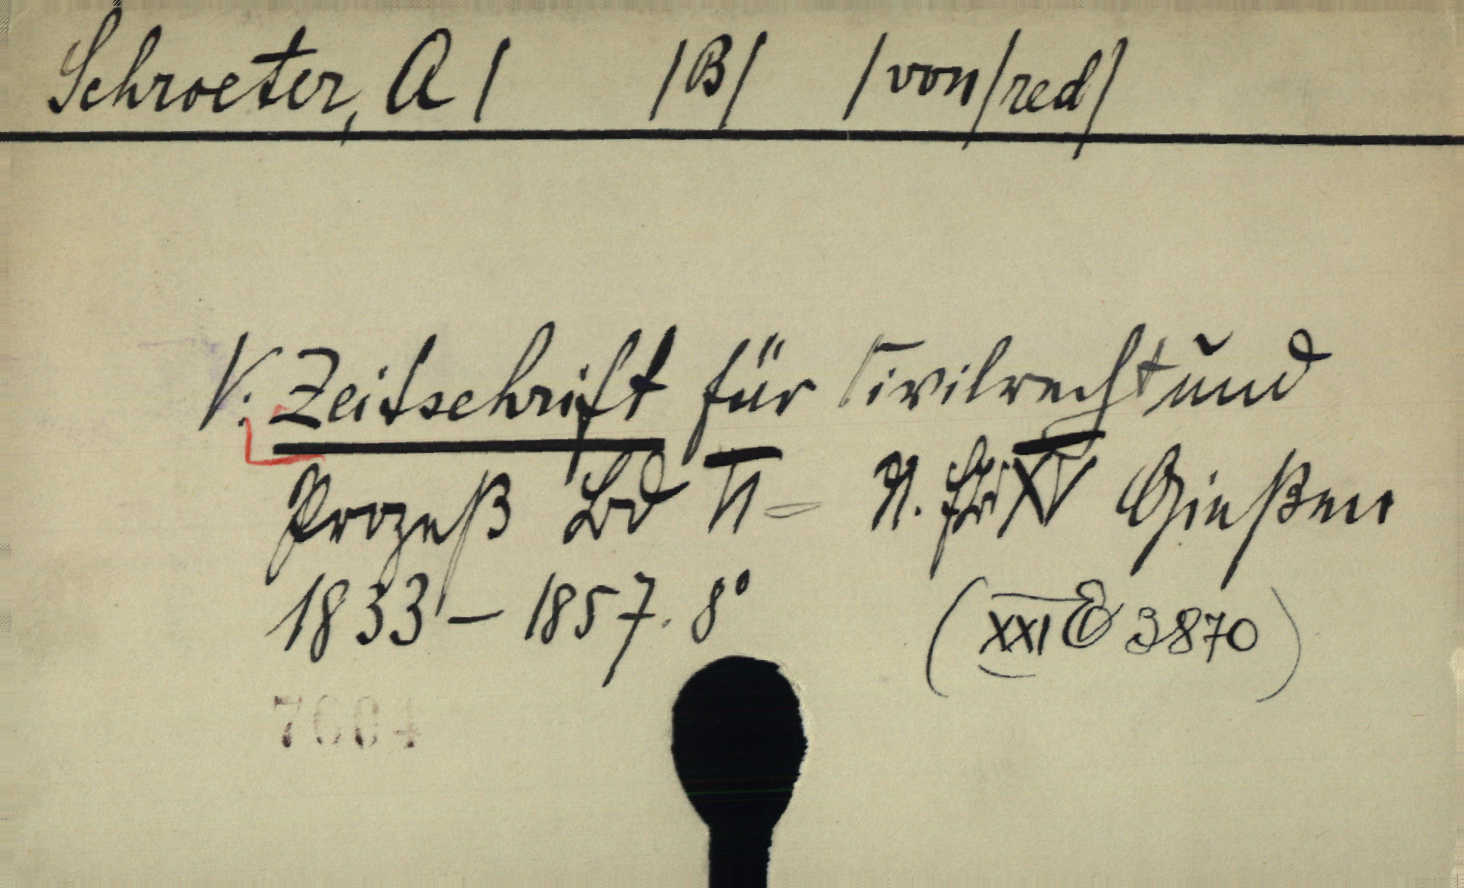 Schroeter, A / /B/ /von/red/
V. Zeitschrift für Civilrecht und
Prozeß Bd VI – N. F. XV Gießen
1833 – 1857. 8°
(XXI E 3870)
7604